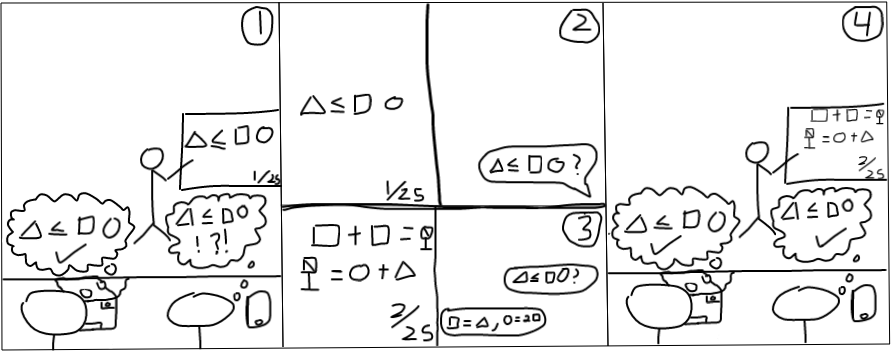 1
△ ≤ □ ○
1/25
△ ≤ □ ○
✓
△ ≤ □ ○
!?!
2
△ ≤ □ ○
1/25
△ ≤ □ ○ ?
3
□ + □ =
= ○ + △
2/25
△ ≤ □ ○ ?
□ = △, ○ = 2□
4
□ + □ =
= ○ + △
2/25
△ ≤ □ ○
✓
△ ≤ □ ○
✓